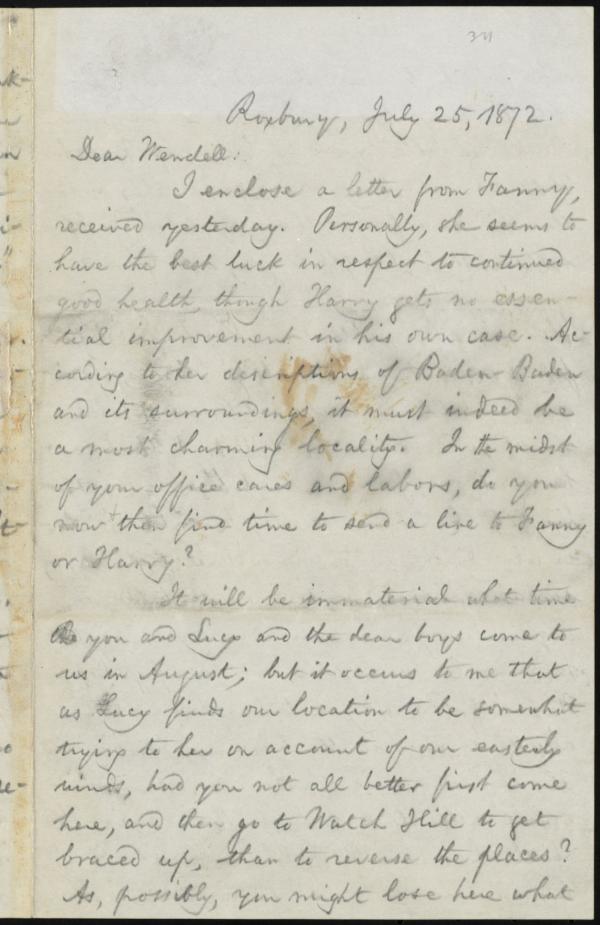 311
Roxbury, July 25, 1872.
Dear Wendell:
I enclose a letter from Fanny,
received yesterday. Personally, she seems to
have the best luck in respect to continued
good health, though Harry gets no essen-
tial improvement in his own case. Ac-
cording to her descriptions of Baden-Baden
and its surroundings, it must indeed be
a most charming locality. In the midst
of your office cares and labors, do you
now + then find time to send a line to Fanny
or Harry?
It will be immaterial what time
you and Lucy and the dear boys come to
us in August; but it occurs to me that
as Lucy finds our location to be somewhat
trying to her on account of our easterly
winds, had you not all better first come
here, and then go to Watch Hill to get
braced up, than to reverse the places?
As, possibly, you might lose here what